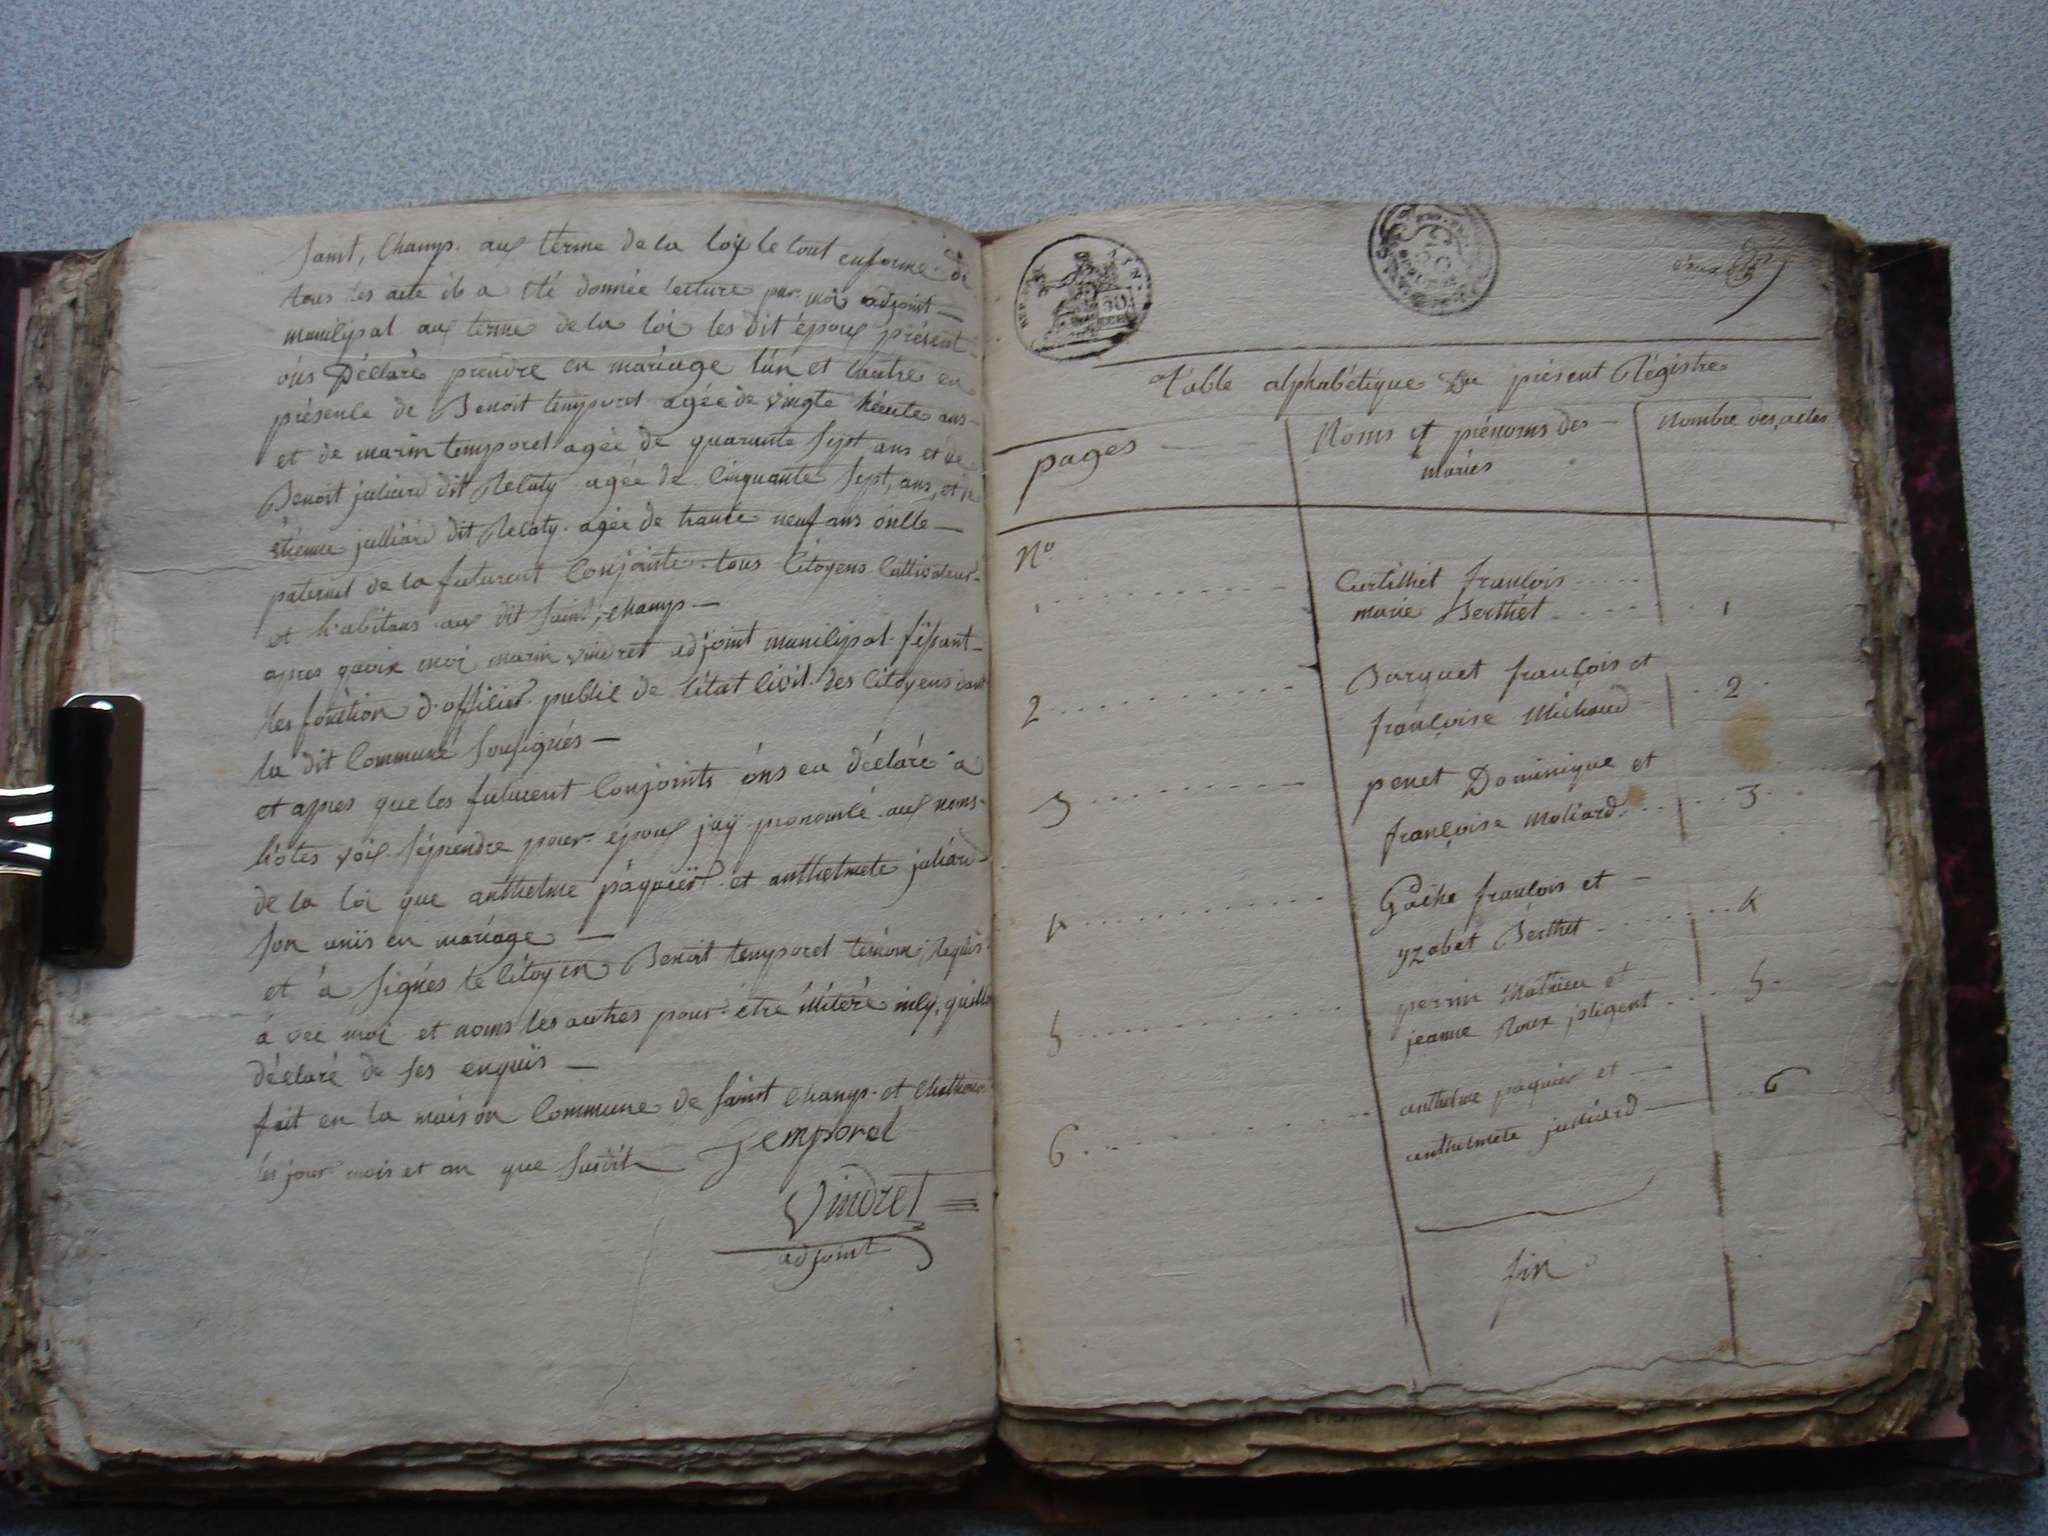 saint, Champ. aux terme de la loÿ le tout enforme de
tous les acte il a été donnée lecture par moi adjoint
municipal aux terme de la loi les dit époux présent
óns Déclaré prendre en mariage lún et lautre en
présence de Benoit temporel agée de vingte ans
et de marin temporel agée de quarante sept ans et de
Benoit juliard dit Relaty agée de Cinquante sept, ans, et de
étienne julliard dit Relaty agée de trante neuf ans óncle
paternel de la futurent Conjointe tous Citoyens Cultivateur
et habitans aux dit saint, champ
apres quoix moi marin vindret adjoint municipal fésant
les fonction d'officier public de l'état Civil des Citoyens
la dit Commune soussignés
et apres que les futurent Conjoints óns eu déclaré a
hôtes voix séprendre pour époux jaÿ prononcé aux noms
de la loi que anthelme pàquier et anthelmete juliard
son uniis en mariage
et à signés le Citoyen Benoit temporel témoin, Requis
à vec moi et noms les autres pour étre illitéré
déclaré de ses enquis
fait en la maison Commune de saint Champ et
les jour mois et an que susdit Temporel
Vindret
adjoint
Table alphabétique Du présent Régistre
pages Noms et prénoms des Nombre des actes
mariés
No
1 Curtilliet françois
marie Berthet 1
2 Burquet françois et
françoise Michaud 2
3 penet Dominique et
françoise Moliard 3
4 Gache françois et
yzabet Berthet 4
5 perrin Mathieu et
jeanne Roux 5
6 anthelme paquier et
anthelmete juliard 6
fin